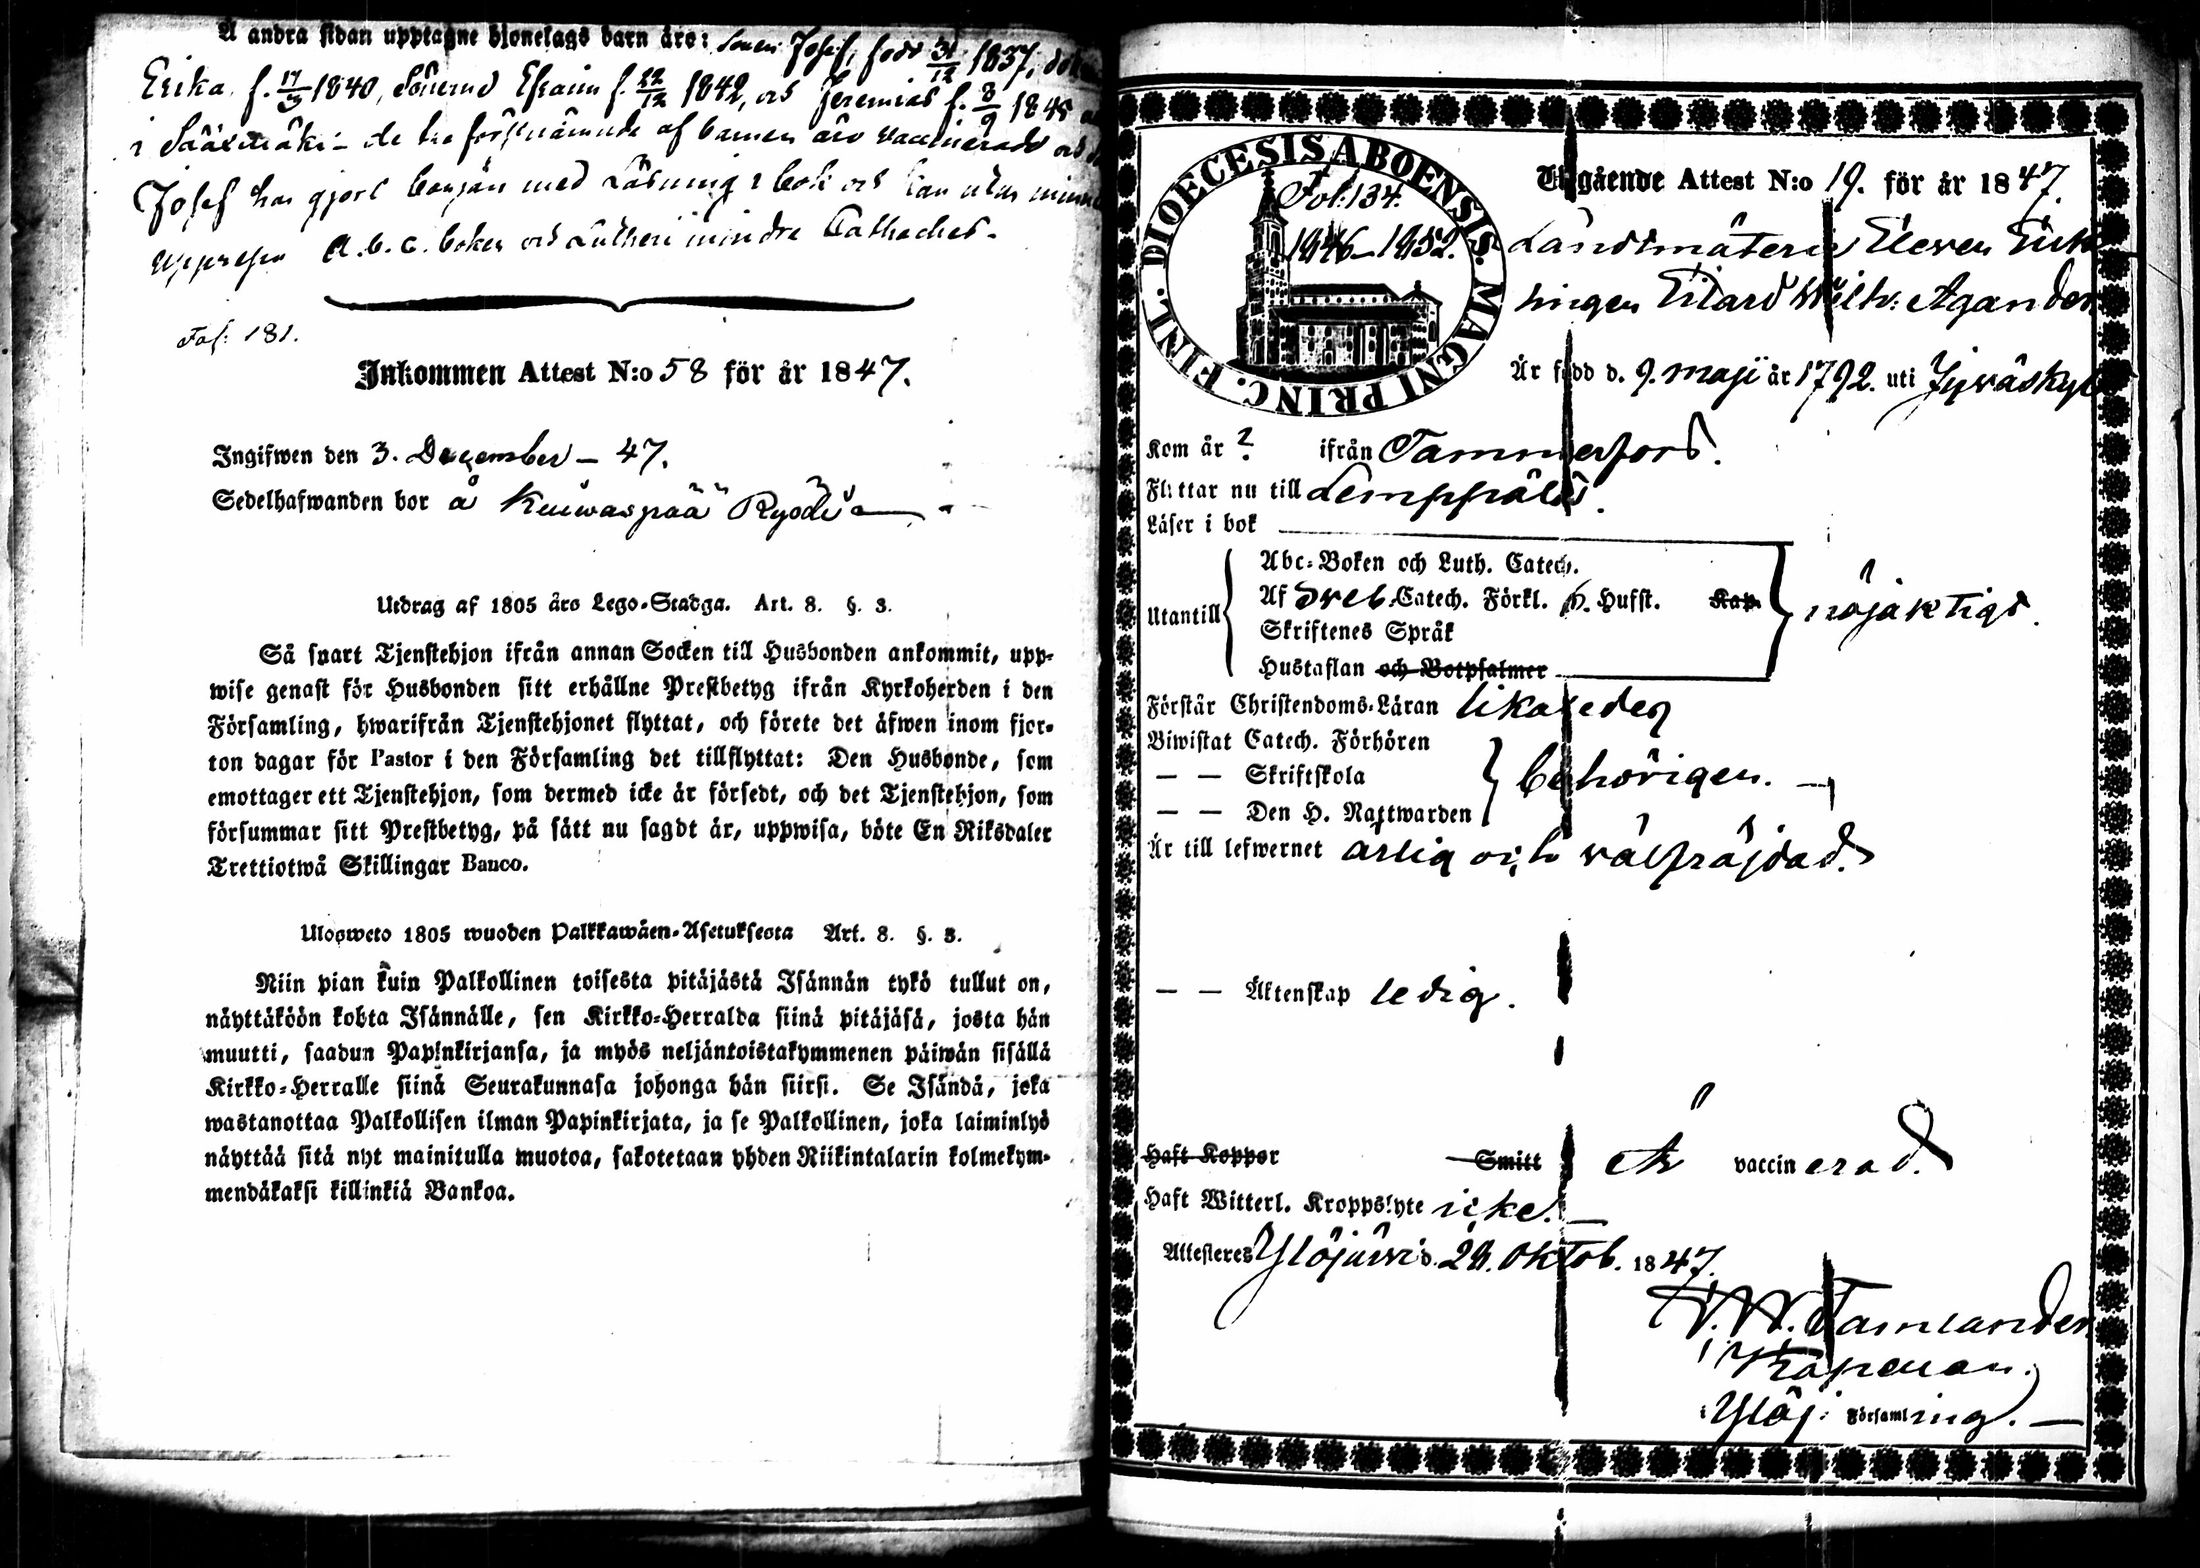 Å andra sidan upptagne hjonelags barn äro: Sonen Josef, född 31/12 1837,
Erika f. 17/3 1840, Sönerne Efraim f. 22/12 1842, och Jeremias f. 8/9 1845
i Sääxmäki – de tre förstnämnde af barnen äro vaccinerade och
Josef har gjort början med Läsning i bok och kan utan
A.b.c. boken och Lutheri mindre Catheches.
Fol: 181.
Inkommen Attest N:o 58 för år 1847.
Ingifwen den 3. December – 47.
Sedelhafwanden bor å Kuiwaspää
Utdrag af 1805 års Lego-Stadga. Art. 8. §. 3.
Så snart Tjenstehjon ifrån annan Socken till Husbonden ankommit, upp-
wise genast för Husbonden sitt erhållne Prestbetyg ifrån Kyrkoherden i den
Församling, hwarifrån Tjenstehjonet flyttat, och förete det äfwen inom fjor-
ton dagar för Pastor i den Församling det tillflyttat: Den Husbonde, som
emottager ett Tjenstehjon, som dermed icke är försedt, och det Tjenstehjon, som
försummar sitt Prestbetyg, på sätt nu sagdt är, uppwisa, böte En Riksdaler
Trettiotwå Skillingar Banco.
Ulosweto 1805 wuoden Palkkawäen-Asetuksesta Art. 8. §. 3.
Niin pian kuin Palkollinen toisesta pitäjästä Isännän tykö tullut on,
näyttäköön kohta Isännälle, sen Kirkko-Herralda siinä pitäjäsä, josta hän
muutti, saadun Papinkirjansa, ja myös neljäntoistakymmenen päiwän sisällä
Kirkko-Herralle siinä Seurakunnasa johonga hän siirsi. Se Isändä, joka
wastanottaa Palkollisen ilman Papinkirjata, ja se Palkollinen, joka laiminlyö
näyttää sitä nyt mainitulla muotoa, sakotetaan yhden Riikintalarin kolmekym-
mendäkaksi killinkiä Bankoa.
DIOECESIS ABOENSIS. MAGNI PRINC. FINL.
Fol: 134.
1846–1852.
Utgående Attest N:o 19. för år 1847.
Landtmäteri Eleven
Wilh: Agander
Är född d. 9. maji år 1792. uti Jywäskylä
Kom år ? ifrån Tammerfors.
Flyttar nu till Lemppälä.
Läser i bok
Utantill
Abc-Boken och Luth. Catech.
Af Sveb. Catech. Förkl. o. Husft. Kap.
Skriftenes Språk
Hustaflan och Botpsalmer
nöjaktigt.
Förstår Christendoms-Läran likaledes
Biwistat Catech. Förhören
— — Skriftskola
— — Den H. Nattwarden
behörigen. —
Är till lefwernet ärlig och välfräjdad.
— — Äktenskap ledig.
Haft Koppor Smitt Är vaccinerad.
Haft Witterl. Kroppslyte icke. —
Attesteres Ylöjärwi d. 28. Oktob. 1847.
Tamlander
Kapellan.
i Ylöj: Församling. —